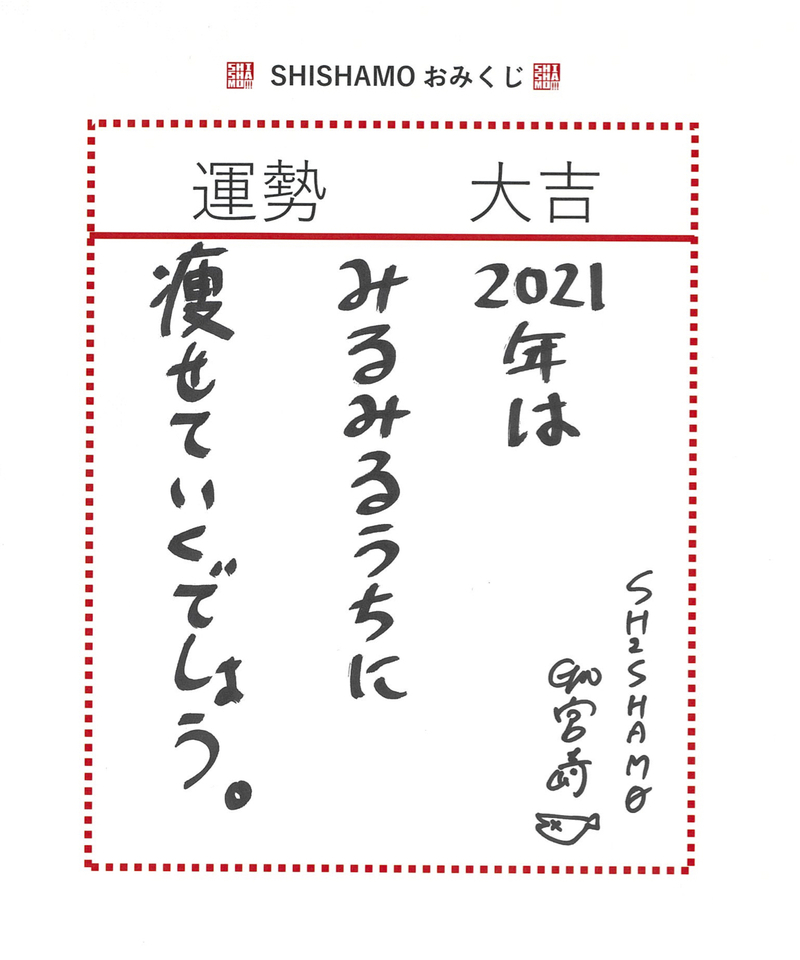 SHISHAMO おみくじ
運勢 大吉
2021年は
みるみるうちに
痩せていくでしょう。
SHISHAMO
Gt/Vo宮崎